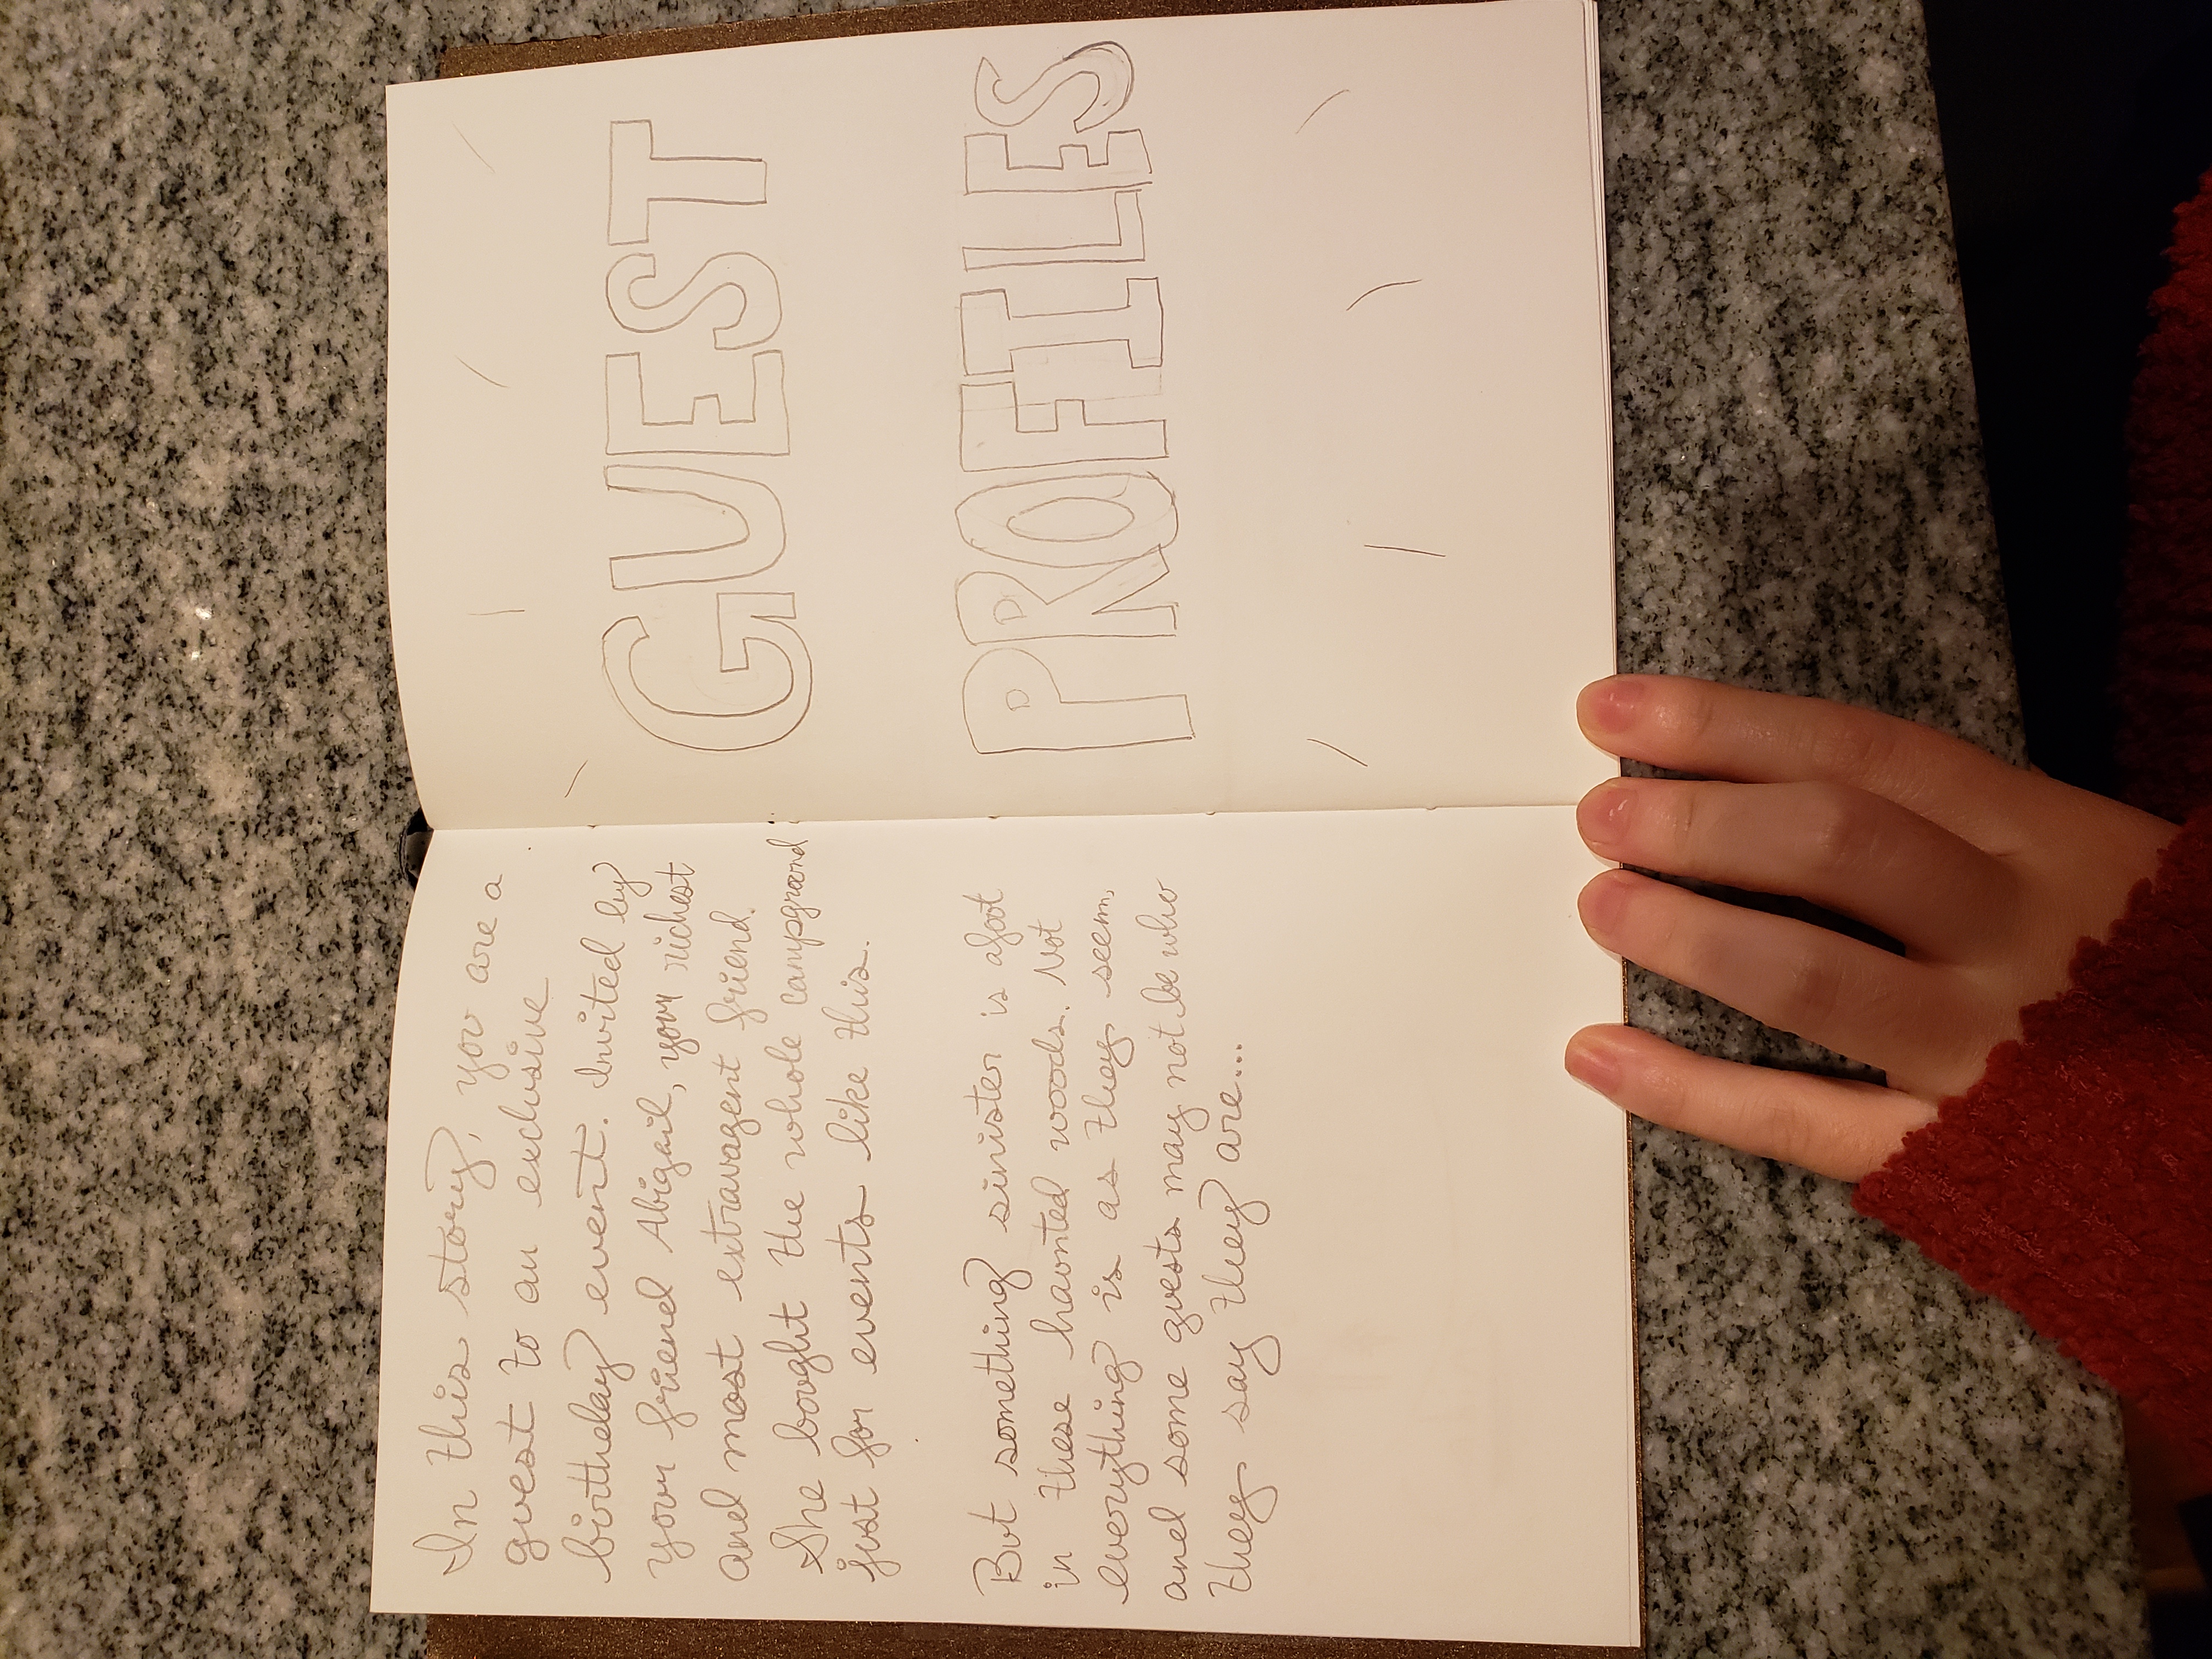 In this story, you are a
guest to an exclusive
birthday event. Invited by
your friend Abigail, your richest
and most extravagent friend.
She bought the whole campground
just for events like this.
But something sinister is afoot
in these haunted woods. Not
everything is as they seem,
and some guests may not be who
they say they are...
GUEST
PROFILES